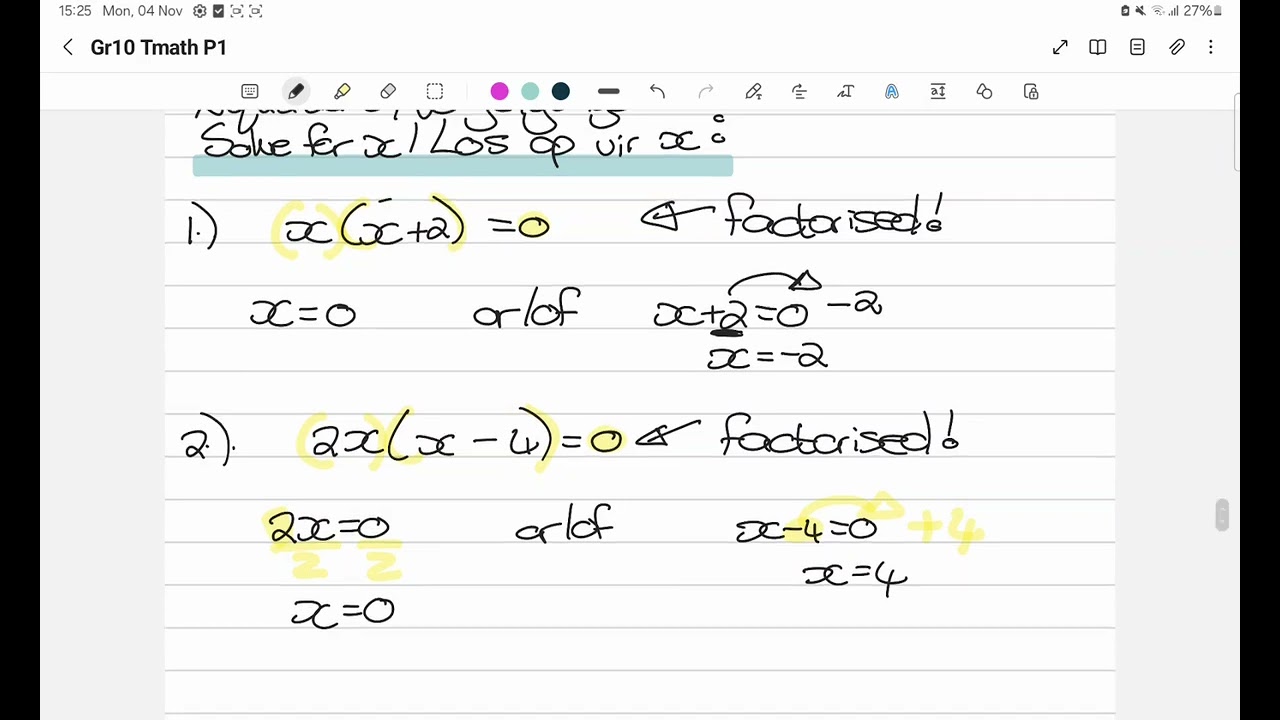 15:25 Mon, 04 Nov 27%
Gr10 Tmath P1
Solve for x / Los op vir x:
1.) x(x+2) = 0 factorised!
x=0 or/of x+2=0 -2
x=-2
2.) 2x(x-4)=0 factorised!
2x=0 or/of x-4=0 +4
2 2 x=4
x=0